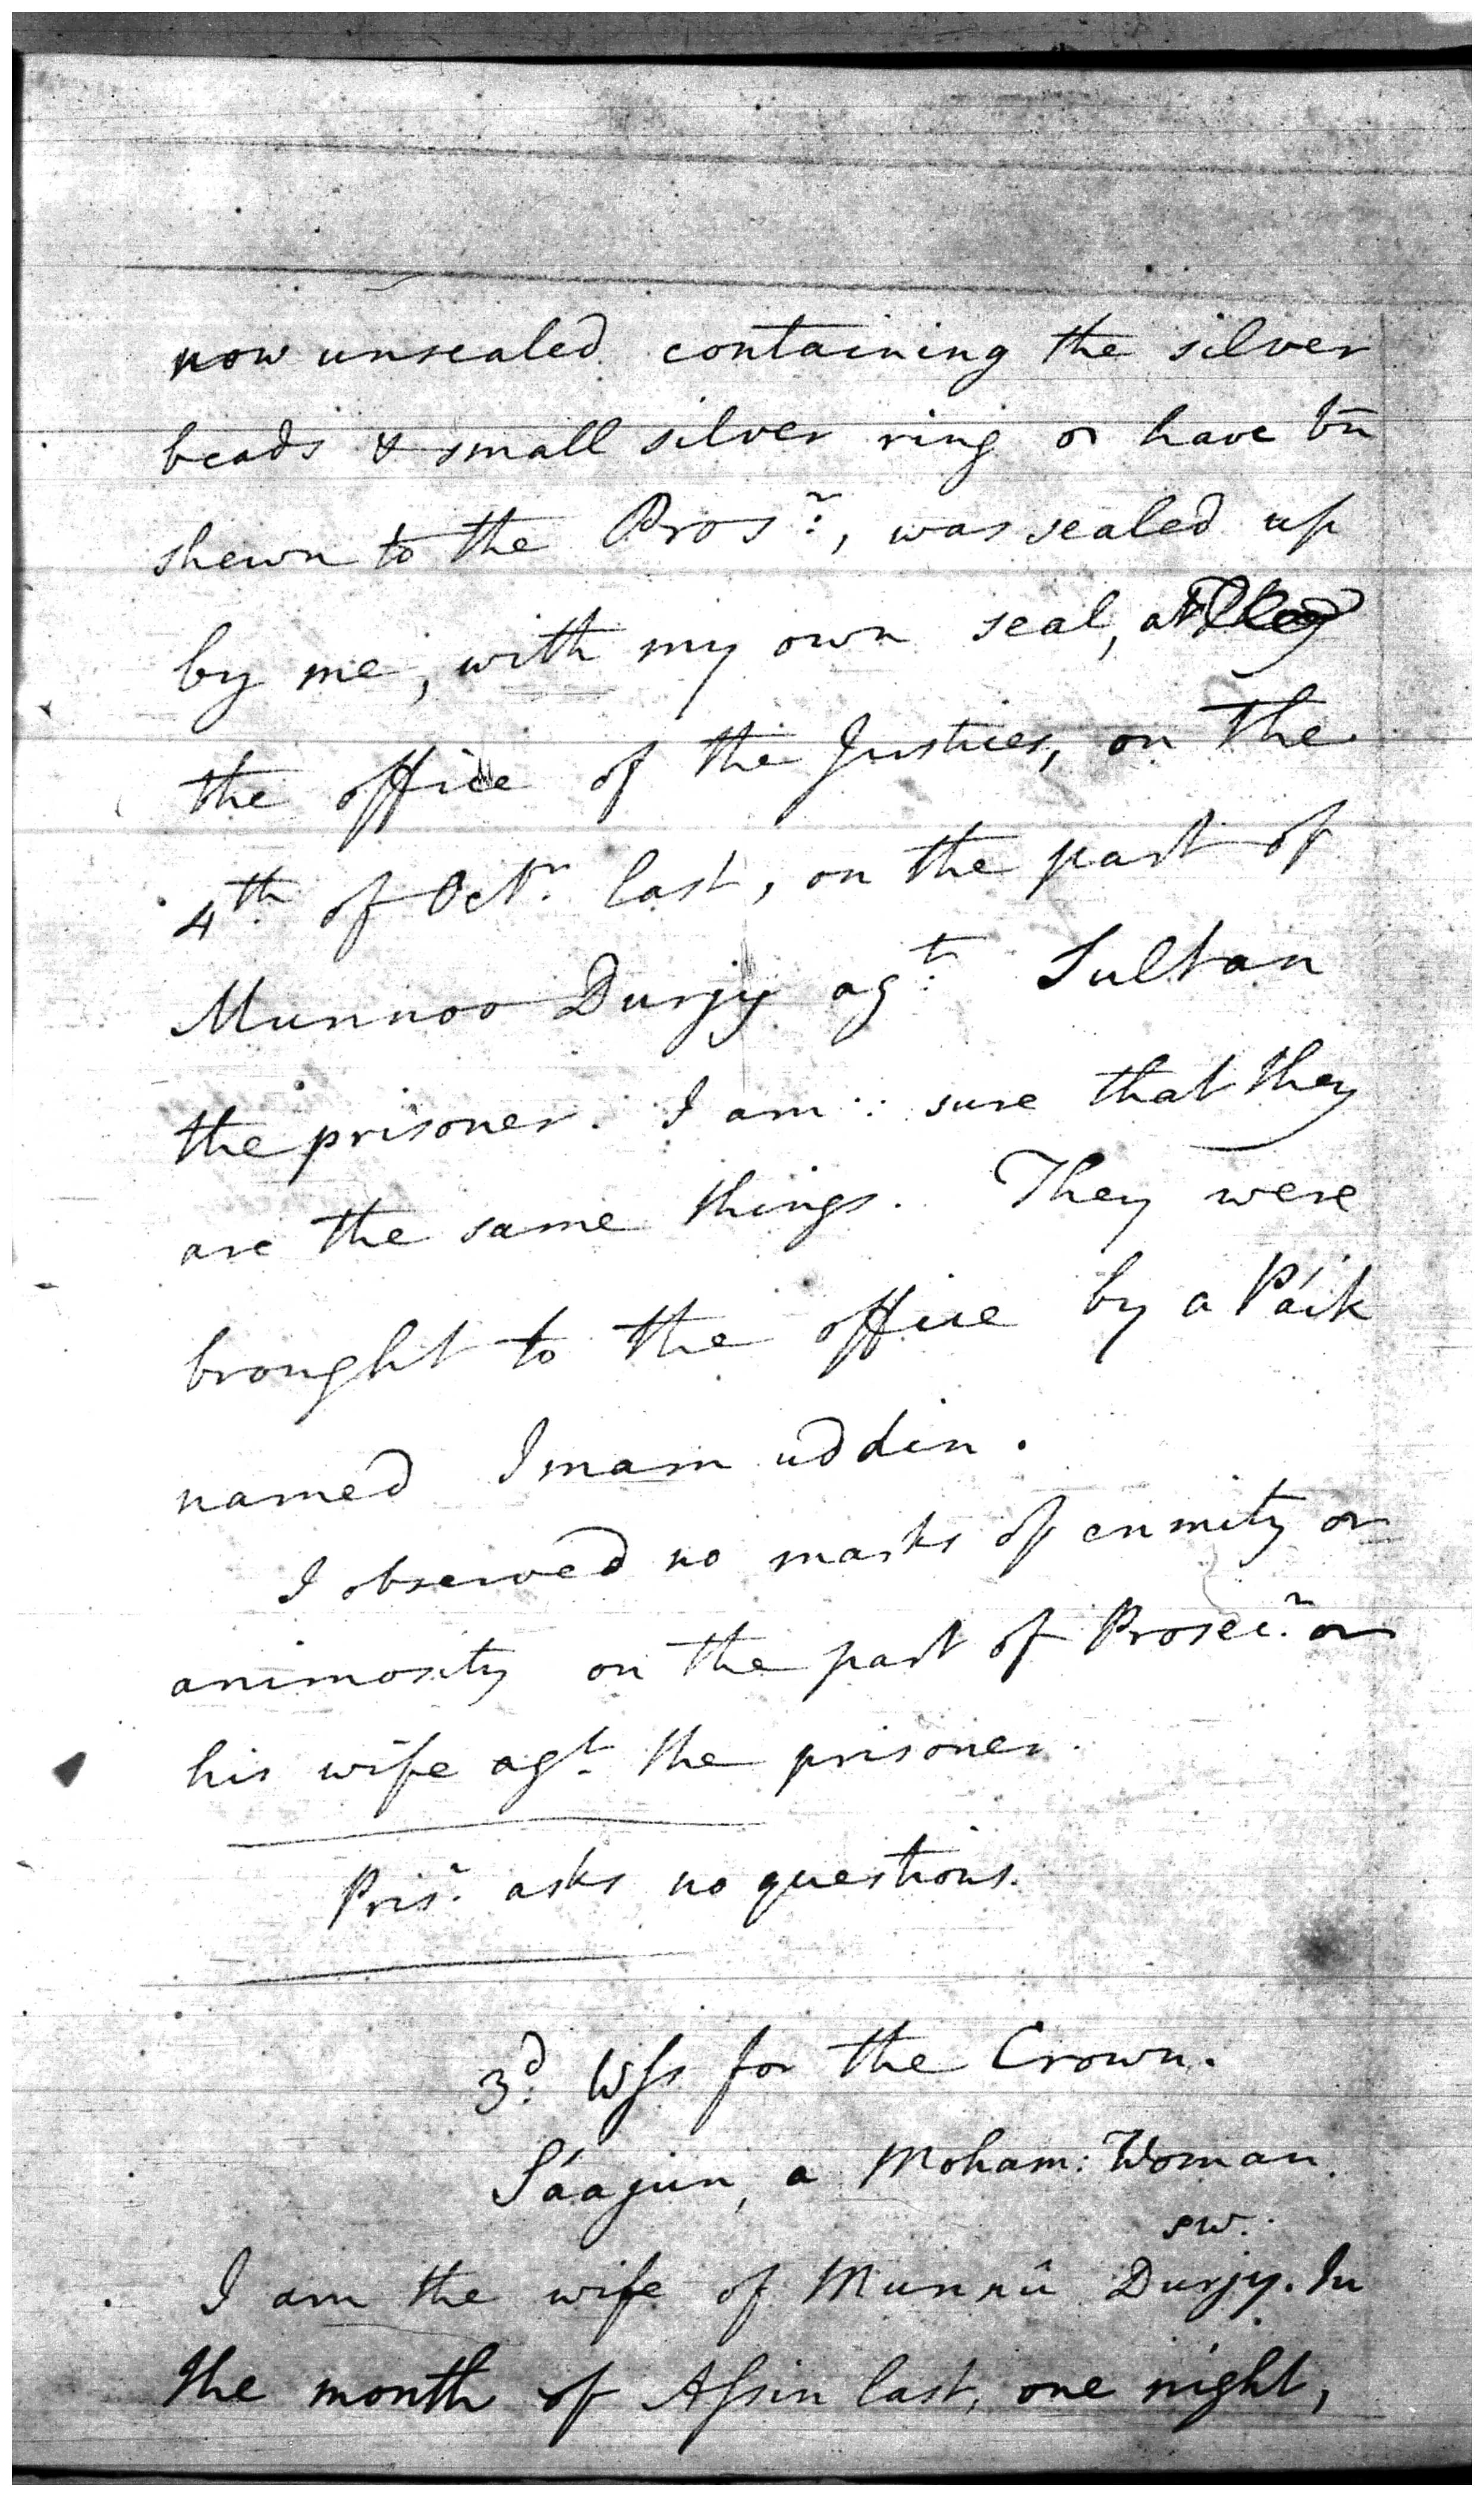 now unsealed containing the silver
beads & small silver ring or have bn̄
shewn to the Prosr., was sealed up
by me, with my own seal, at
the office of the Justices, on the
4th of Octr. last, on the part of
Munnoo Durjy agt. Sultan
the prisoner. I am sure that they
are the same things. They were
brought to the office by a Páik
named Imam uddin.
I observed no marks of enmity or
animosity on the part of Prosecr. or
his wife agt. the prisoner.
Prisr. asks no questions.
3d. Wſs for the Crown.
Sáajun, a Moham: Woman.
sw.
I am the wife of Munnû Durjy. In
the month of Aſsin last, one night,